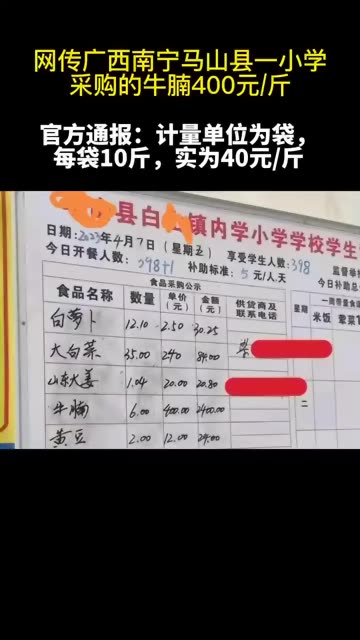 网传广西南宁马山县一小学
采购的牛腩400元/斤
官方通报：计量单位为袋，
每袋10斤，实为40元/斤
县白 镇内学小学学校学生
日期：2023年4月7日（星期五） 享受学生人数：398 监督举
今日开餐人数：398+1 补助标准：5元/人.天 今日补助总
食品采购公示 一周带量食
食品名称 数量 单价（元） 金额（元） 供货商及联系电话 星期 米饭 荤菜
白萝卜 12.10 2.50 30.25
大白菜 35.00 2.40 84.00
山东大姜 1.04 20.00 20.80
牛腩 6.00 400.00 2400.00 二
黄豆 2.00 12.00 24.00